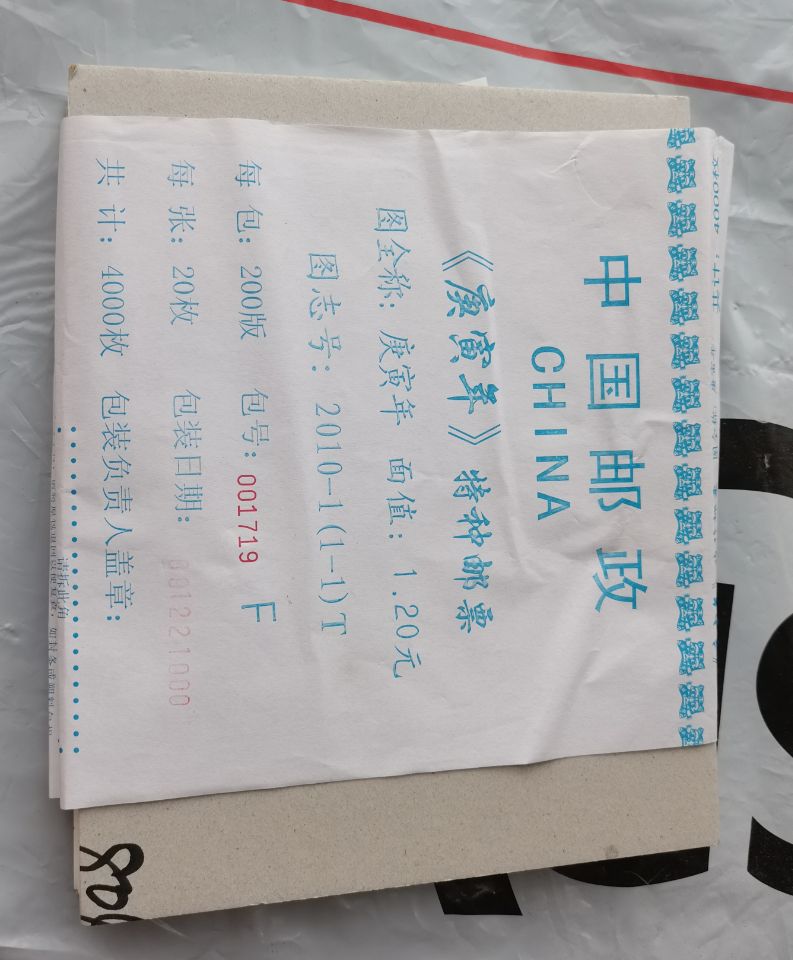 中国邮政
CHINA
《庚寅年》特种邮票
图全称：庚寅年 面值：1.20元
图志号：2010-1(1-1)T
每 包：200版 包号：001719 F
每 张：20枚 包装日期：
共 计：4000枚 包装负责人盖章：
请拆此角